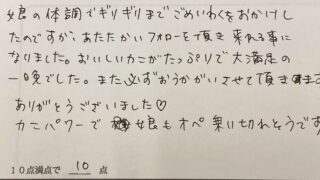 娘の体調でギリギリまでごめいわくをおかけし
たのですが、あたたかいフォローを頂き来れる事に
なりました。おいしいカニがたっぷりで大満足の
一晩でした。また必ずおうかがいさせて頂きます
ありがとうございました♡
カニパワーで娘もオペ乗り切れそうです
10点満点で 10 点